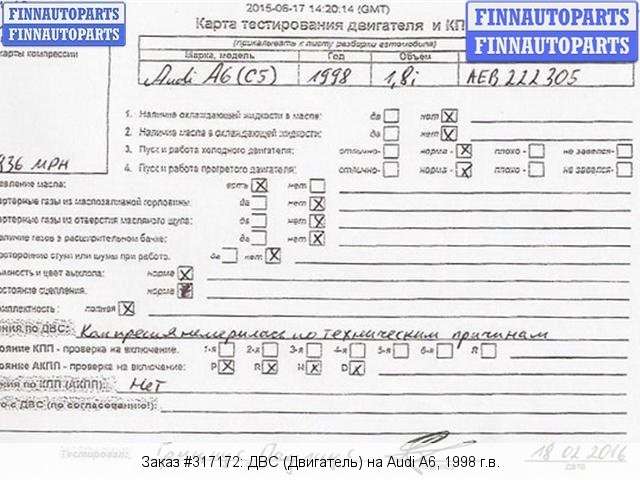 FINNAUTOPARTS
FINNAUTOPARTS
2015-06-17 14:20:14 (GMT)
FINNAUTOPARTS
FINNAUTOPARTS
Карта тестирования двигателя и КП
(прикалывать к листу разборки автомобиля)
карты компрессии
Марка, модель Год Объем
Audi A6 (C5) 1998 1,8i AEB 222305
1. Наличие охлаждающей жидкости в масле: да нет X
2. Наличие масла в охлаждающей жидкости: да нет X
3. Пуск и работа холодного двигателя: отлично- норма - X плохо - не завелся-
936 МРН
4. Пуск и работа прогретого двигателя: отлично- норма - X плохо - не завелся-
авление масла: есть X нет
артерные газы из маслозаливной горловины: да нет X
артерные газы из отверстия масляного щупа: да нет X
аличие газов в расширительном бачке: да нет X
осторонние стуки или шумы при работе. да нет X
ность и цвет выхлопа: норма X
остояние сцепления. норма X
мплектность: полная X
ния по ДВС: Компрессия немерилась по техническим причинам
ояние КПП - проверка на включение. 1-я 2-я 3-я 4-я 5-я 6-я R
ояние АКПП - проверка на включение: P X R X N X D X
ния по КПП (АКПП): Нет
о с ДВС (по согласованию!):
Тестировал: 18 02 2016
дата
Заказ #317172: ДВС (Двигатель) на Audi A6, 1998 г.в.